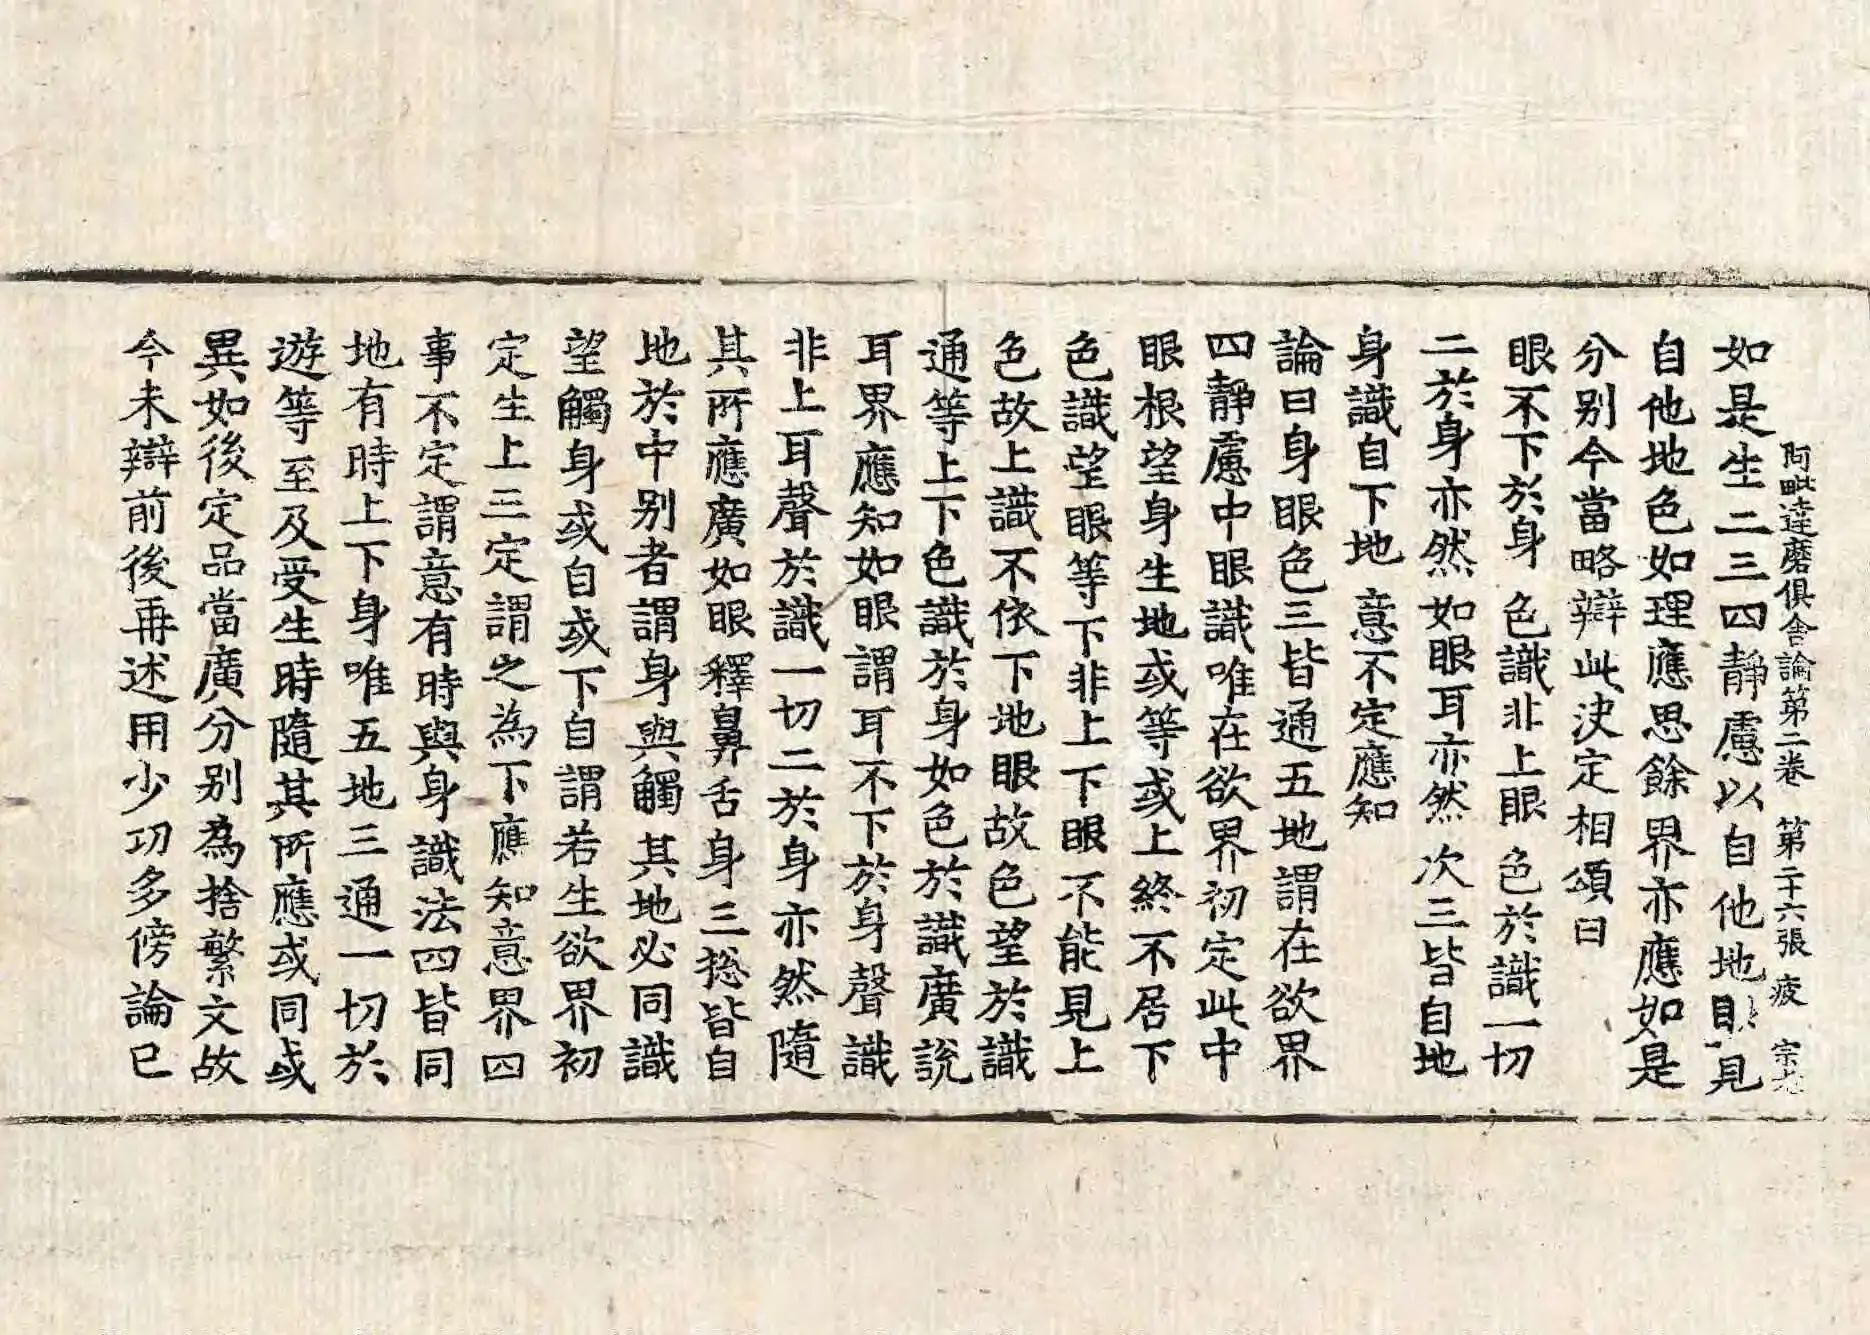 阿毗達磨俱舍論第二卷 第二十六張 疲 宗
如是生二三四靜慮以自他地眼見
自他地色如理應思餘界亦應如是
分別今當略辯此決定相頌曰
眼不下於身 色識非上眼 色於識一切
二於身亦然 如眼耳亦然 次三皆自地
身識自下地 意不定應知
論曰身眼色三皆通五地謂在欲界
四靜慮中眼識唯在欲界初定此中
眼根望身生地或等或上終不居下
色識望眼等下非上下眼不能見上
色故上識不依下地眼故色望於識
通等上下色識於身如色於識廣說
耳界應知如眼謂耳不下於身聲識
非上耳聲於識一切二於身亦然隨
其所應廣如眼釋鼻舌身三捴皆自
地於中別者謂身與觸其地必同識
望觸身或自或下自謂若生欲界初
定生上三定謂之為下應知意界四
事不定謂意有時與身識法四皆同
地有時上下身唯五地三通一切於
遊等至及受生時隨其所應或同或
異如後定品當廣分別為捨繁文故
今未辯前後再述用少功多傍論已